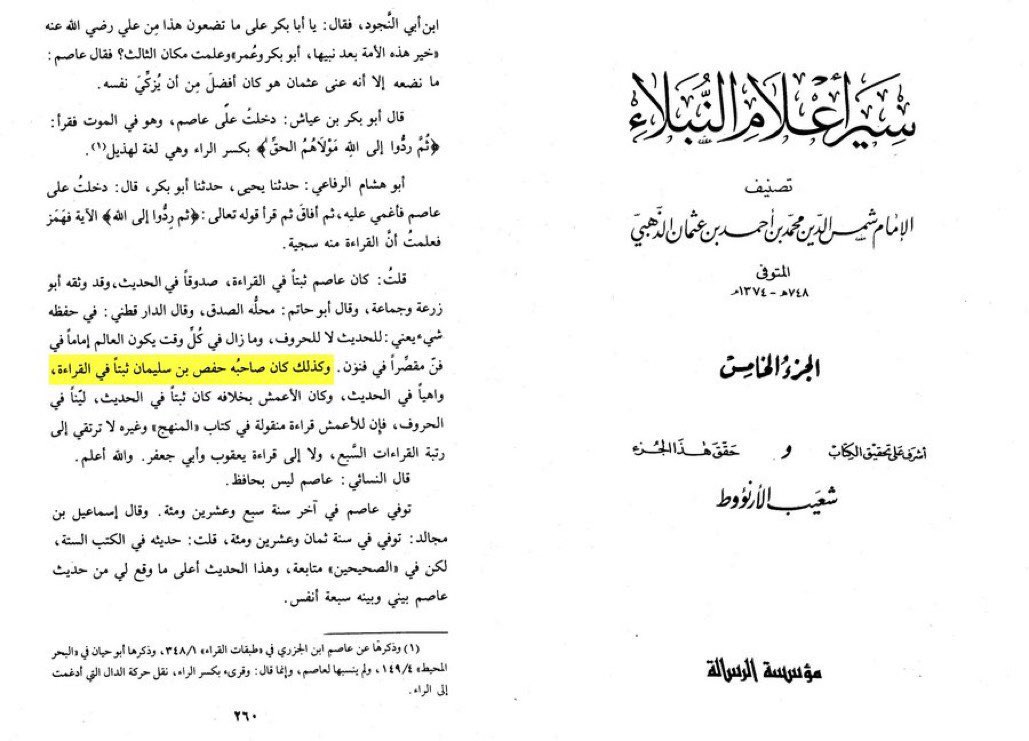 سير أعلام النبلاء
تصنيف
الإمام شمس الدين محمد بن أحمد بن عثمان الذهبي
المتوفى
٧٤٨هـ - ١٣٧٤م
الجزء الخامس
أشرف على تحقيق الكتاب و حقق هذا الجزء
شعيب الأرنؤوط
مؤسسة الرسالة
ابن أبي النَّجود، فقال: يا أبا بكر على ما تضعون هذا مِن علي رضي الله عنه
«خير هذه الأمة بعد نبيها، أبو بكر وعُمر» وعلمت مكان الثالث؟ فقال عاصم:
ما نضعه إلا أنه عنى عثمان هو كان أفضلَ مِن أن يُزكِّيَ نفسه.
قال أبو بكر بن عياش: دخلتُ على عاصم، وهو في الموت فقرأ:
﴿ثُمَّ رِدُّوا إلى اللهِ مَوْلَاهُمُ الحقِّ﴾ بكسر الراء وهي لغة لهذيل(١).
أبو هشام الرفاعي: حدثنا يحيى، حدثنا أبو بكر، قال: دخلتُ على
عاصم فأغمي عليه، ثم أفاقَ ثم قرأ قوله تعالى: ﴿ثم رِدُّوا إلى الله﴾ الآية فهَمَز
فعلمتُ أنَّ القراءة منه سجية.
قلتُ: كان عاصم ثبتاً في القراءة، صدوقاً في الحديث، وقد وثقه أبو
زرعة وجماعة، وقال أبو حاتم: محلُّه الصدق، وقال الدار قطني: في حفظه
شيء يعني: للحديث لا للحروف، وما زال في كُلِّ وقت يكون العالم إماماً في
فنّ مقصِّراً في فنون. وكذلك كان صاحبُه حفص بن سليمان ثبتاً في القراءة،
واهياً في الحديث، وكان الأعمش بخلافه كان ثبتاً في الحديث، ليّناً في
الحروف، فإن للأعمش قراءة منقولة في كتاب «المنهج» وغيره لا ترتقي إلى
رتبة القراءات السَّبع، ولا إلى قراءة يعقوب وأبي جعفر. والله أعلم.
قال النسائي: عاصم ليس بحافظ.
توفي عاصم في آخر سنة سبع وعشرين ومئة. وقال إسماعيل بن
مجالد: توفي في سنة ثمان وعشرين ومئة، قلت: حديثه في الكتب الستة،
لكن في «الصحيحين» متابعة، وهذا الحديث أعلى ما وقع لي من حديث
عاصم بيني وبينه سبعة أنفس.
(١) وذكرها عن عاصم ابن الجزري في «طبقات القراء» ٣٤٨/١، وذكرها أبو حيان في «البحر
المحيط» ١٤٩/٤، ولم ينسبها لعاصم، وإنما قال: وقرىء بكسر الراء، نقل حركة الدال التي أدغمت
إلى الراء.
٢٦٠